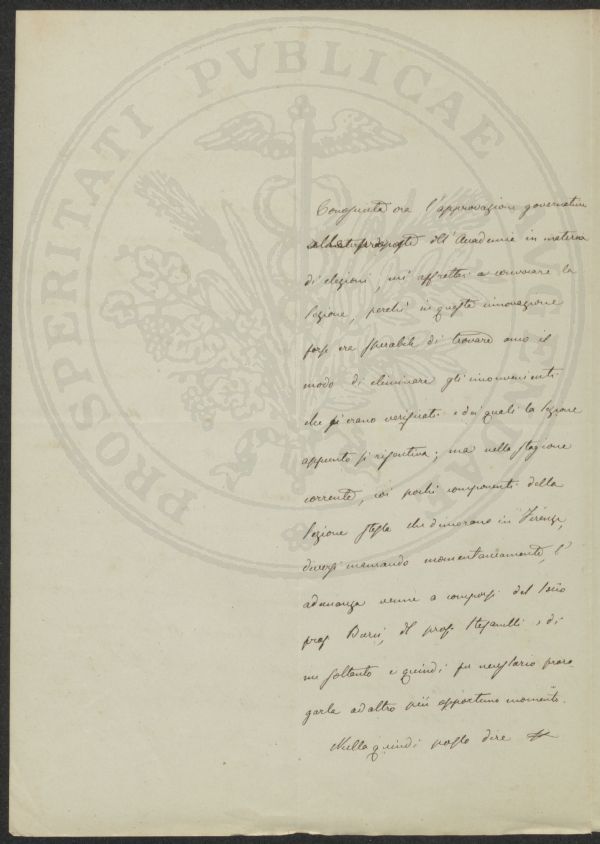 PROSPERITATI PVBLICAE
Conseguita ora l'approvazione governativa
alle proposte dell'Accademia in materia
di elezioni, mi affrettai a convocare la
Sezione, perchè in questa innovazione
forse era sperabile di trovare anco il
modo di eliminare gli inconvenienti
che si erano verificati e dei quali la Sezione
appunto si risentiva; ma nella stagione
corrente, coi pochi componenti della
Sezione stessa che dimorano in Firenze,
diversi mancando momentaneamente, l'
adunanza venne a comporsi del Socio
prof. , del prof. Stefanelli e di
me soltanto e quindi fu necessario proro
garla ad altro più opportuno momento.
Nulla quindi posso dire